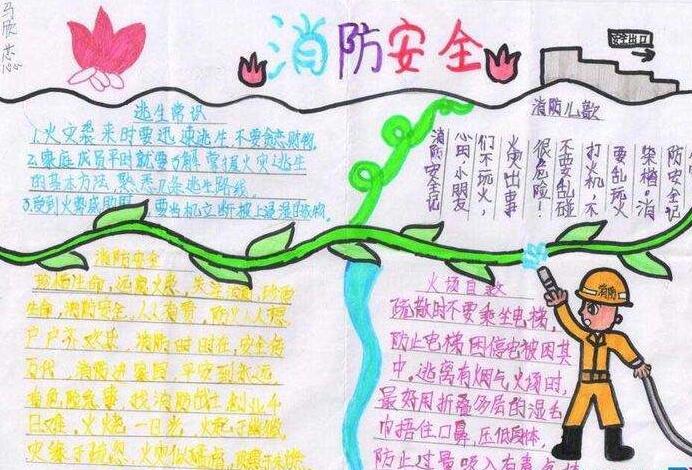 消防安全
安全出口
逃生常识
1.火灾袭来时要迅速逃生,不要贪恋财物.
2.家庭成员平时就要了解掌握火灾逃生
的基本方法,熟悉几条逃生路线.
3.受到火势威胁时,要当机立断披上浸湿的衣物,
消防儿歌
消防安全记
心田小朋友
们不玩火,
火灾出事
很危险!
不要乱碰
打火机,不
要乱玩火
柴楂。消
防安全记
消防安全
珍惜生命,远离火灾,关注消防,珍爱
生命,消防安全,人人有责,防火人人想,
户户齐欢笑.消防时时在,安全伴
百代.消防进校园,平安到永远.
日难,火烧一日光,火起于幽微,
火场自救
疏散时不要乘坐电梯,
防止电梯因停电被困其
中。逃离有烟气火场时,
最好用折叠多层的湿毛
巾捂住口鼻,压低身体,
防止过量吸入有毒气体
消防